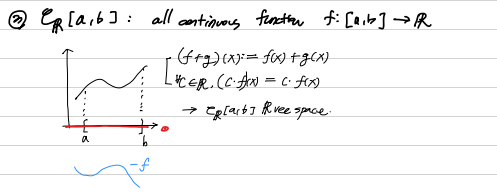 ③ 𝒞_ℝ[a,b] : all continuous function f: [a,b] → ℝ
(f+g)(x) := f(x) + g(x)
∀c∈ℝ, (c·f)(x) = c· f(x)
→ 𝒞_ℝ[a,b] ℝ vec space.
a b
-f